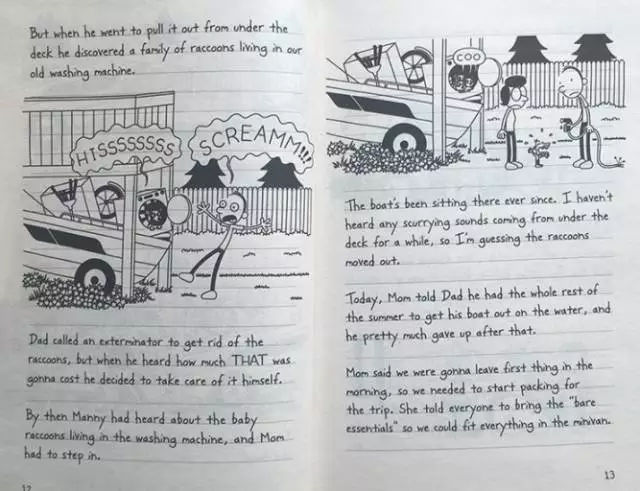 But when he went to pull it out from under the
deck he discovered a family of raccoons living in our
old washing machine.
HISSSSSSSS
SCREAMM!!!
Dad called an exterminator to get rid of the
raccoons, but when he heard how much THAT was
gonna cost he decided to take care of it himself.
By then Manny had heard about the baby
raccoons living in the washing machine, and Mom
had to step in.
12
COO
The boat's been sitting there ever since. I haven't
heard any scurrying sounds coming from under the
deck for a while, so I'm guessing the raccoons
moved out.
Today, Mom told Dad he had the whole rest of
the summer to get his boat out on the water, and
he pretty much gave up after that.
Mom said we were gonna leave first thing in the
morning, so we needed to start packing for
the trip. She told everyone to bring the "bare
essentials" so we could fit everything in the minivan.
13